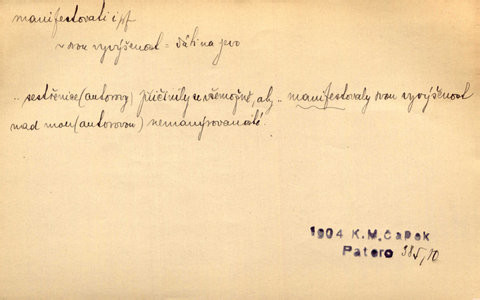 manifestovati ipf
~ svou vyvýšenost = dáti na jevo
.. sestřenice (autorovy) přičinily se všemožně, aby .. manifestovaly svou vyvýšenost
nad mou (autorovou) nemanýrovaností.
1904 K.M.Čapek
Patero 385,10